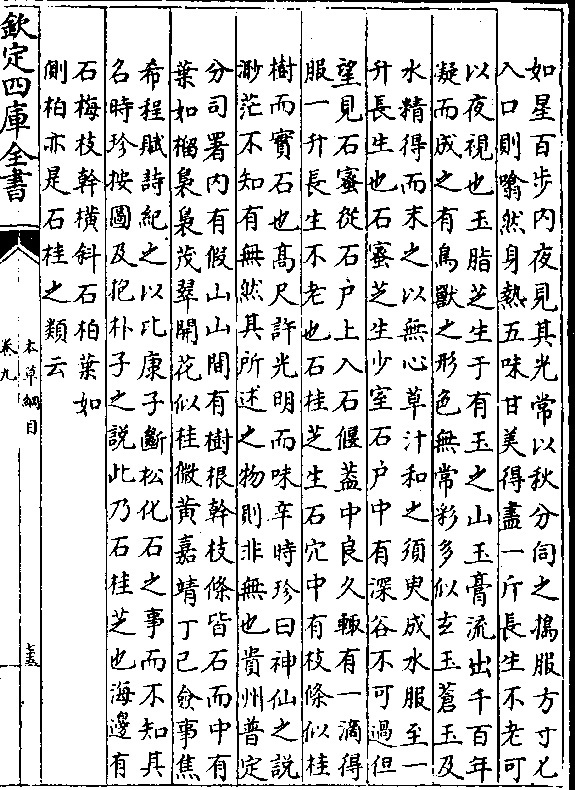 如星百步内夜見其光常以秋分伺之擣服方寸匕
入口則噏然身熱五味甘美得盡一斤長生不老可
以夜視也玉脂芝生于有玉之山玉膏流出千百年
凝而成之有鳥獸之形色無常彩多似玄玉蒼玉及
水精得而末之以無心草汁和之須臾成水服至一
升長生也石蜜芝生少室石户中有深谷不可過但
望見石蜜從石户上入石偃葢中良久輙有一滴得
服一升長生不老也石桂芝生石穴中有枝條似桂
樹而實石也髙尺許光明而味辛時珍曰神仙之說
渺茫不知有無然其所述之物則非無也貴州普定
分司署内有假山山間有樹根幹枝條皆石而中有
葉如榴裊裊茂翠開花似桂微黄嘉靖丁巳僉事焦
希程賦詩紀之以比康子斷松化石之事而不知其
名時珍按圖及抱朴子之說此乃石桂芝也海邊有
石梅枝幹橫斜石柏葉如
側柏亦是石桂之類云
欽定四庫全書
本草綱目
卷九